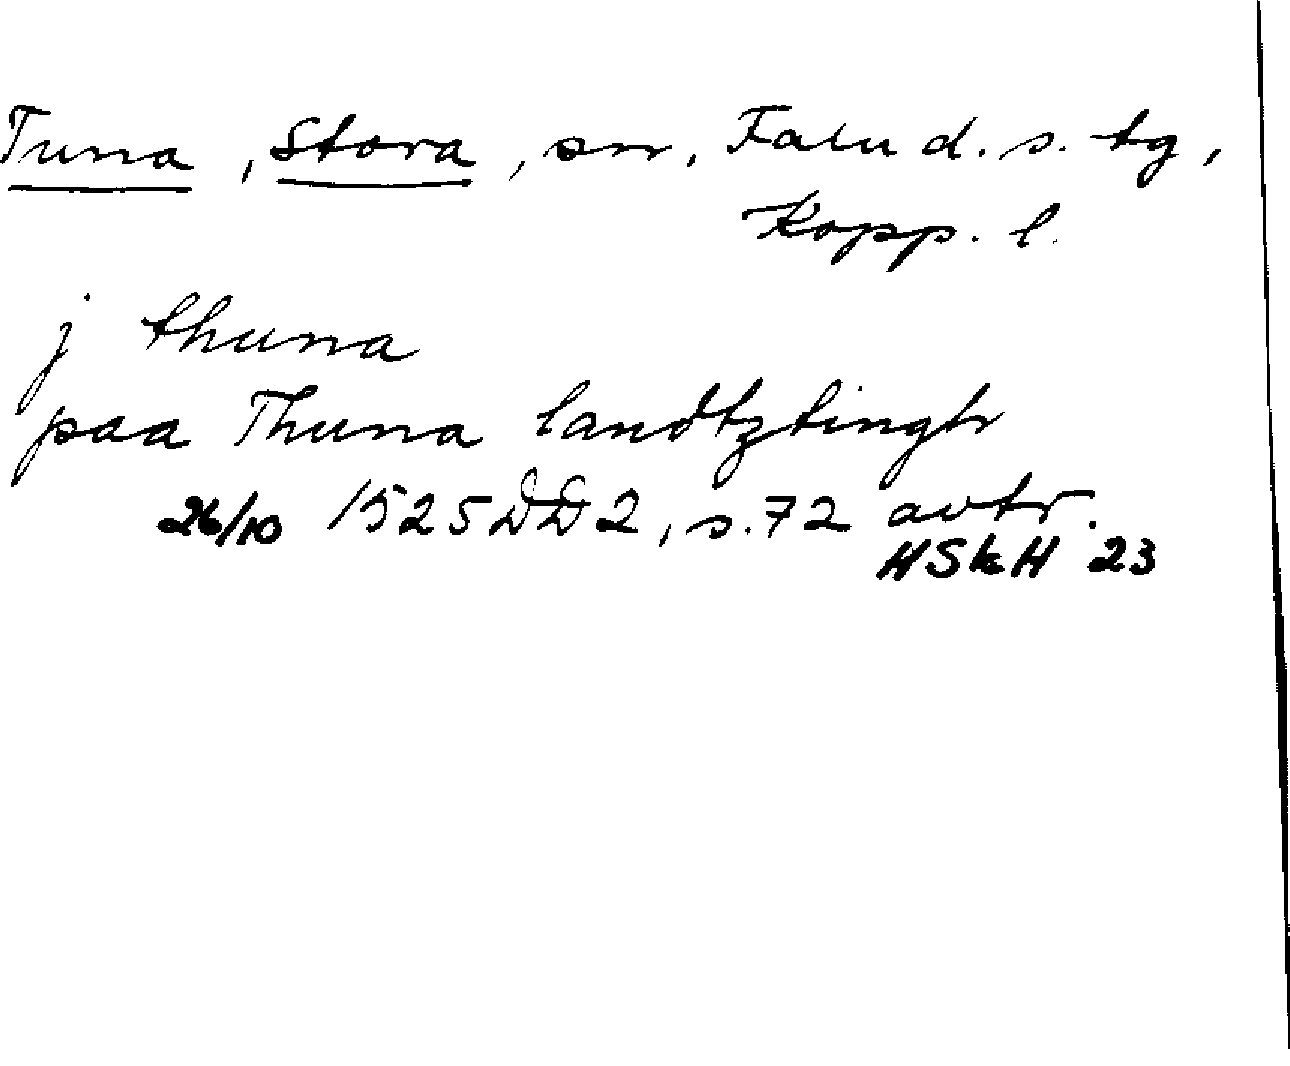 Tuna, Stora, sn, Falu d. s. tg,
Kopp. l.
j thuna
paa Thuna landtztingh
26/10 1525 DD 2, s. 72 avtr.
HSkH 23